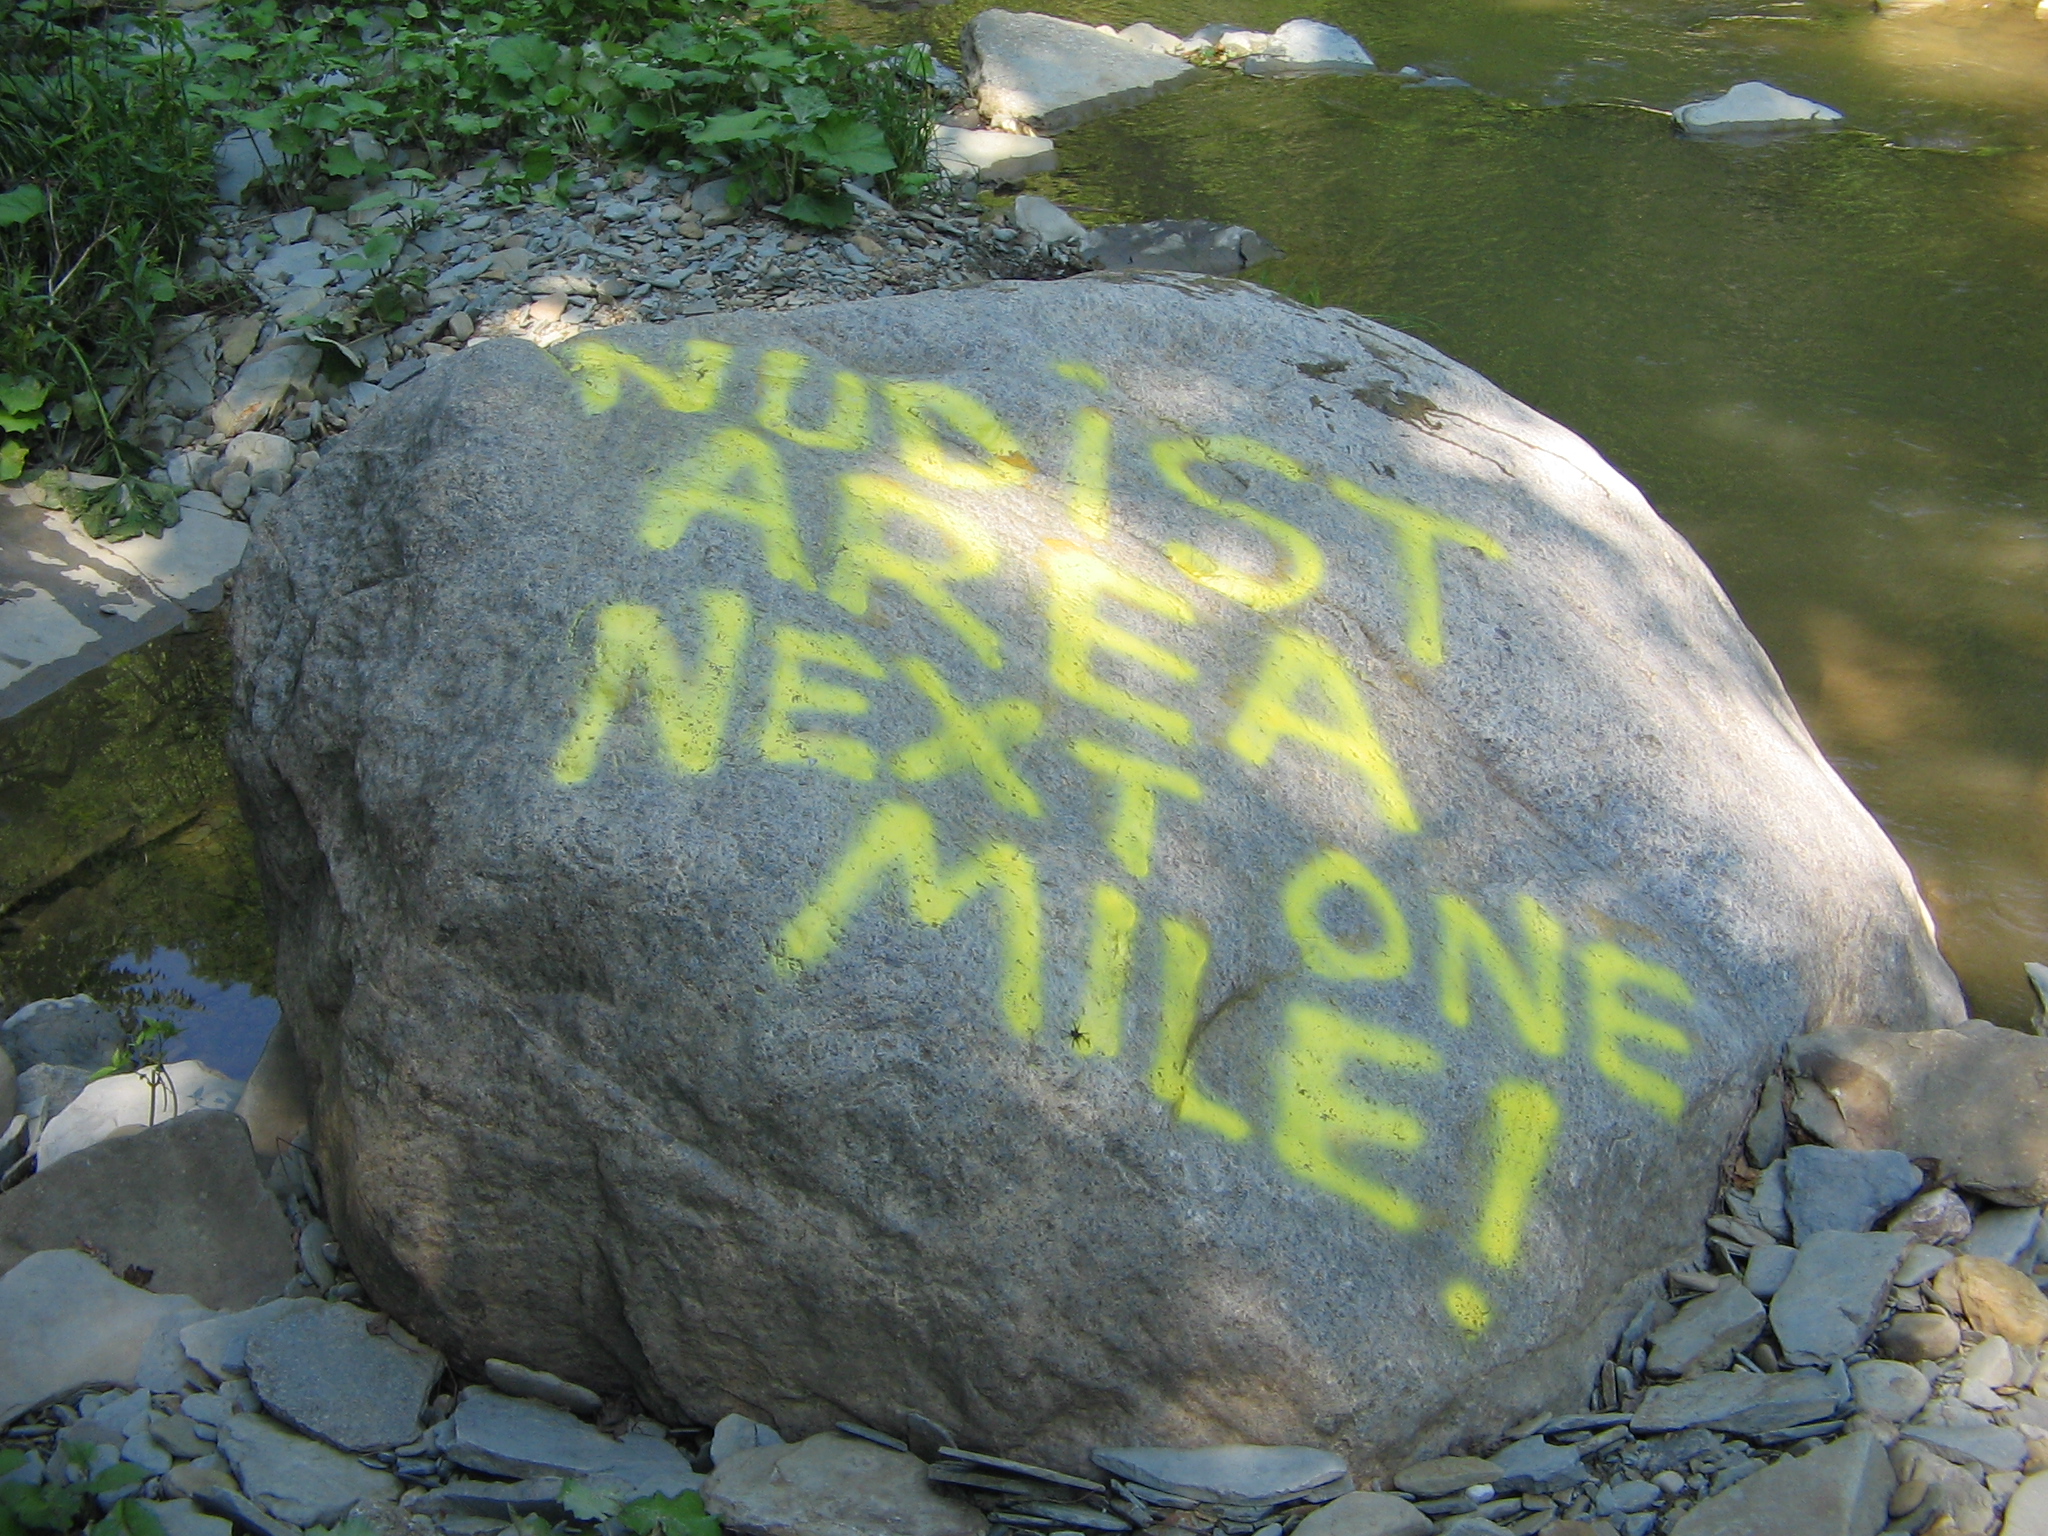 NUDiST
AREA
NEXT ONE
MILE!